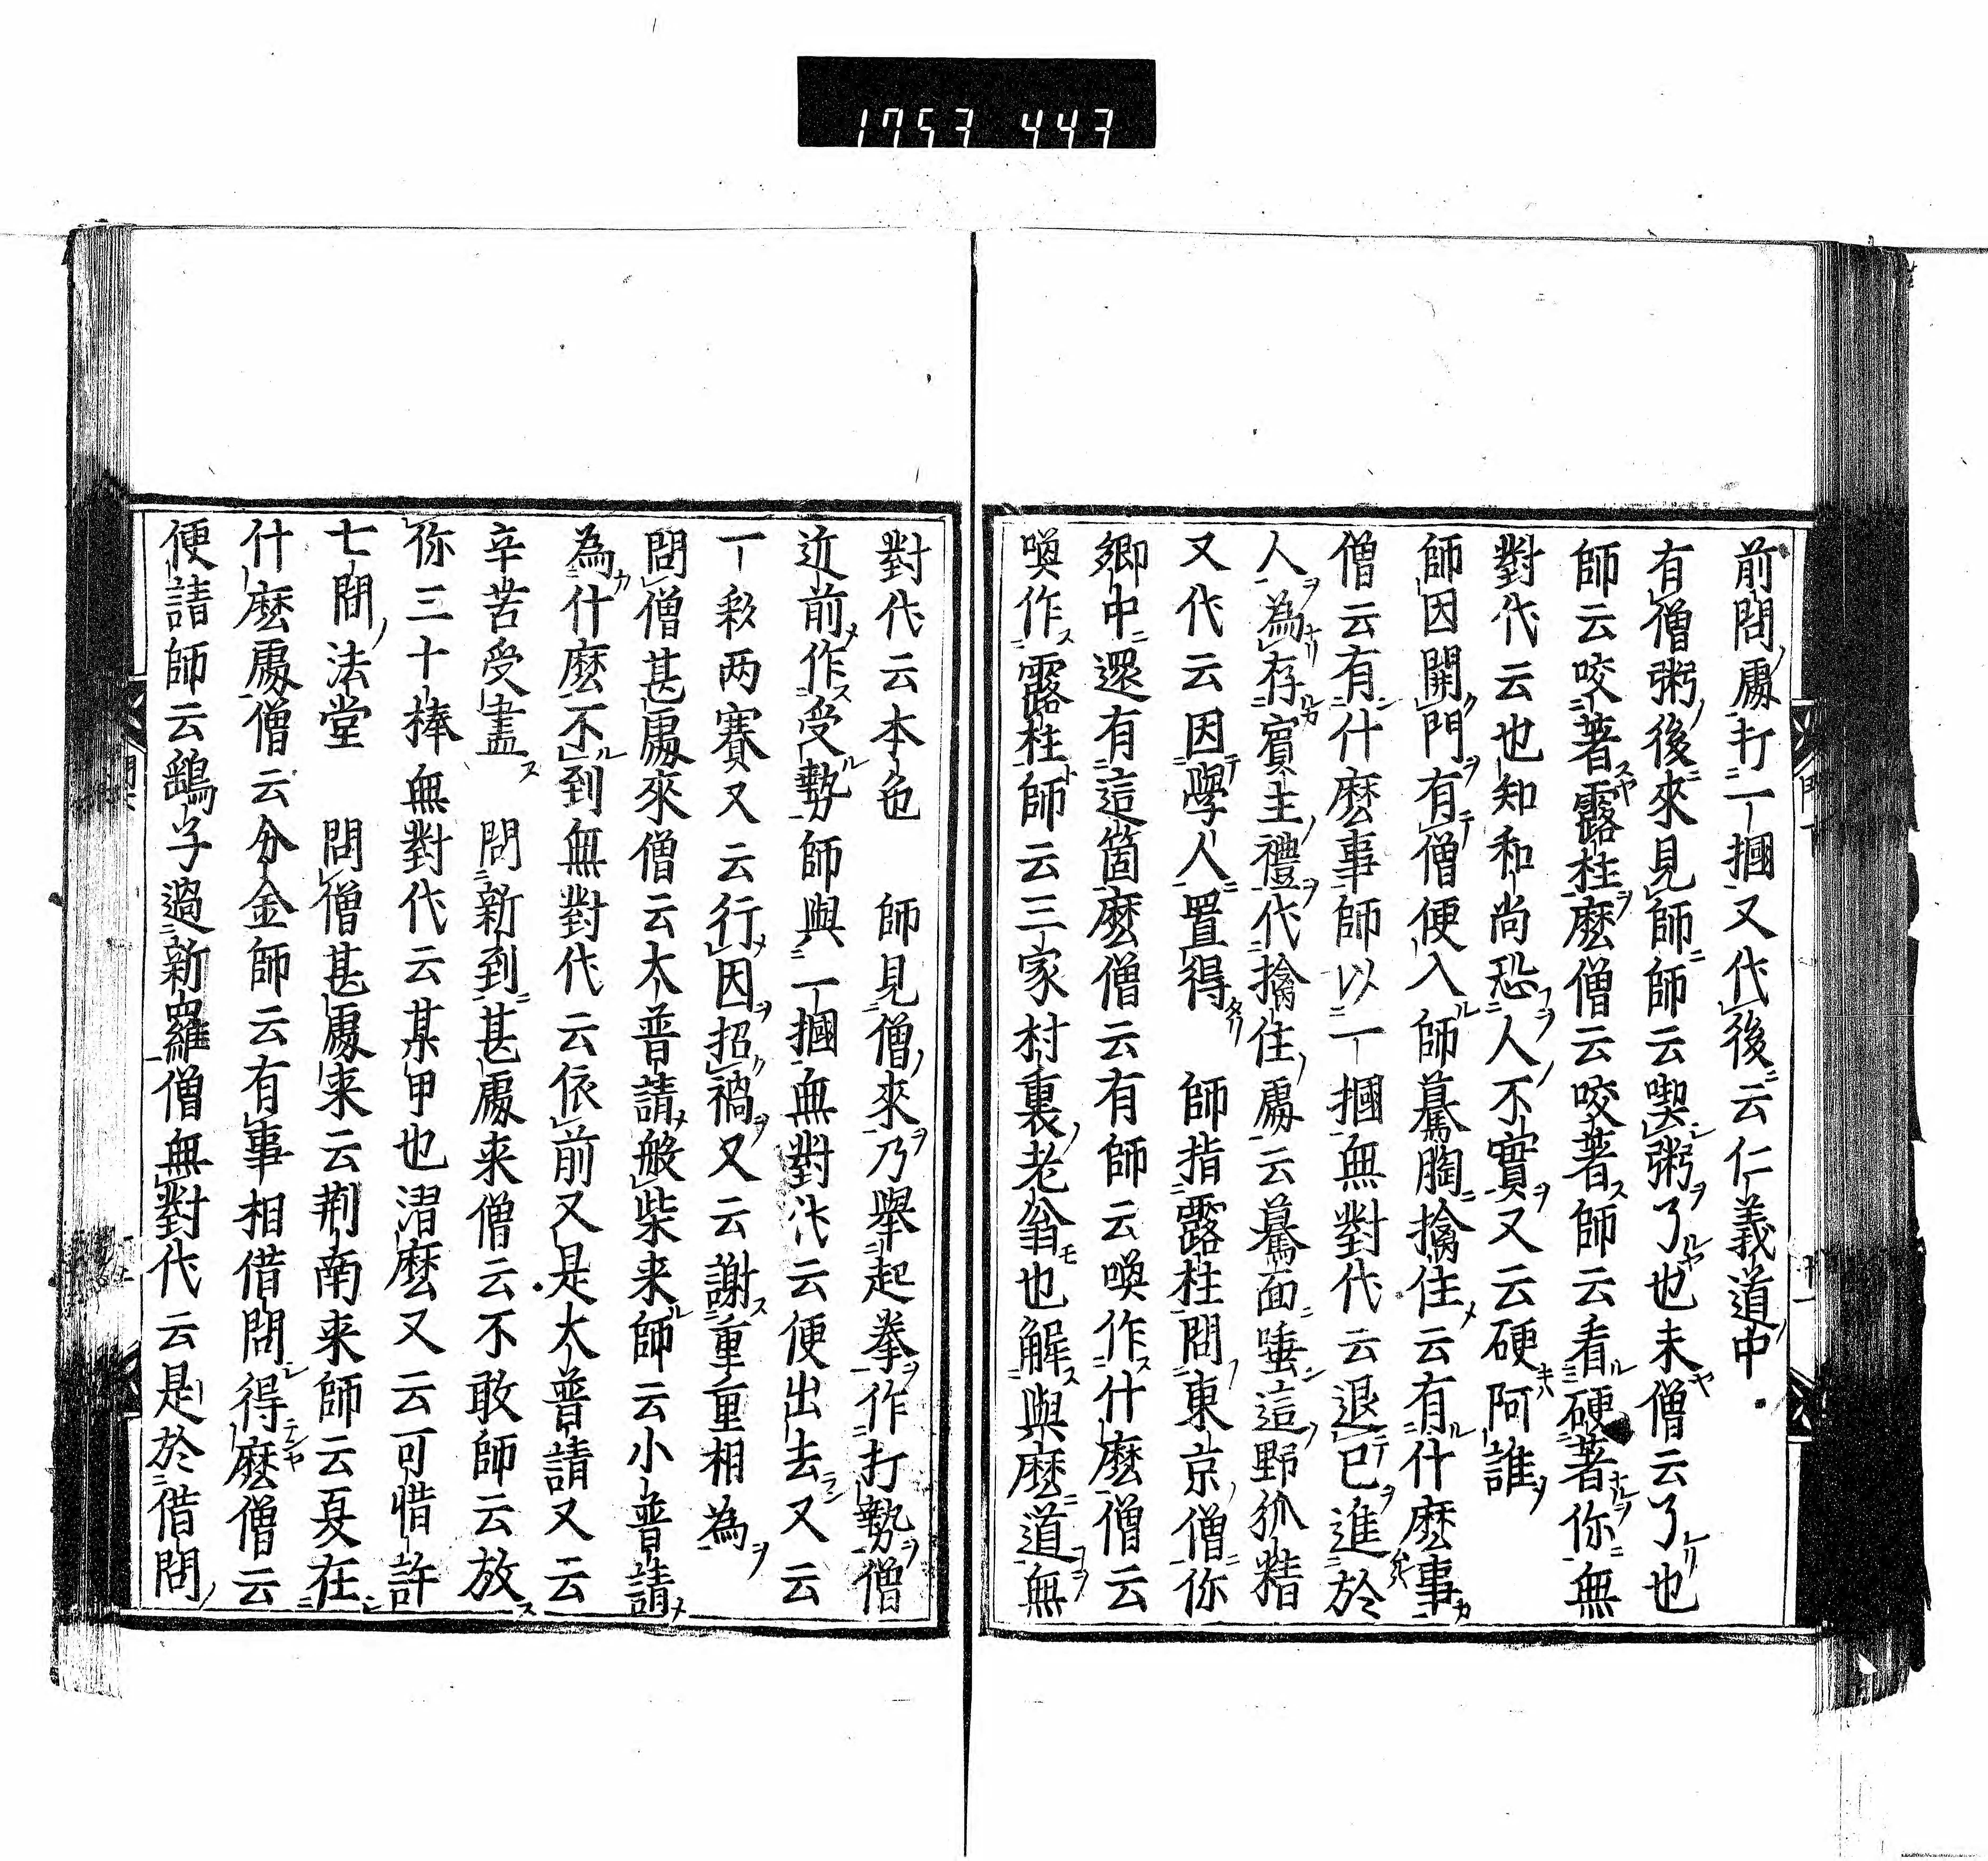 1753 443
前問處打一摑又代後云仁義道中
有僧粥後來見師師云喫粥了也未僧云了也
師云咬著露柱麼僧云咬著師云看硬著你無
對代云也知和尚恐人不實又云硬阿誰
師因開門有僧便入師驀胸擒住云有什麼事
僧云有什麼事師以一摑無對代云退已進於
人為存賓主禮代擒住處云驀面唾這野狐精
又代云因學人置得　師指露柱問東京僧你
鄉中還有這箇麼僧云有師云喚作什麼僧云
喚作露柱師云三家村裏老翁也解與麼道無
對代云本色　師見僧來乃舉起拳作打勢僧
近前作受勢師與一摑無對代云便出去又云
一彩两賽又云行因招禍又云謝重重相為
問僧甚處來僧云大普請般柴来師云小普請
為什麼不到無對代云依前又是大普請又云
辛苦受盡　問新到甚處来僧云不敢師云放
你三十捧無對代云某甲也潛麼又云可惜許
七間法堂　問僧甚處来云荆南来師云夏在
什麼處僧云分金師云有事相借問得麼僧云
便請師云鷂子過新羅僧無對代云是於借問